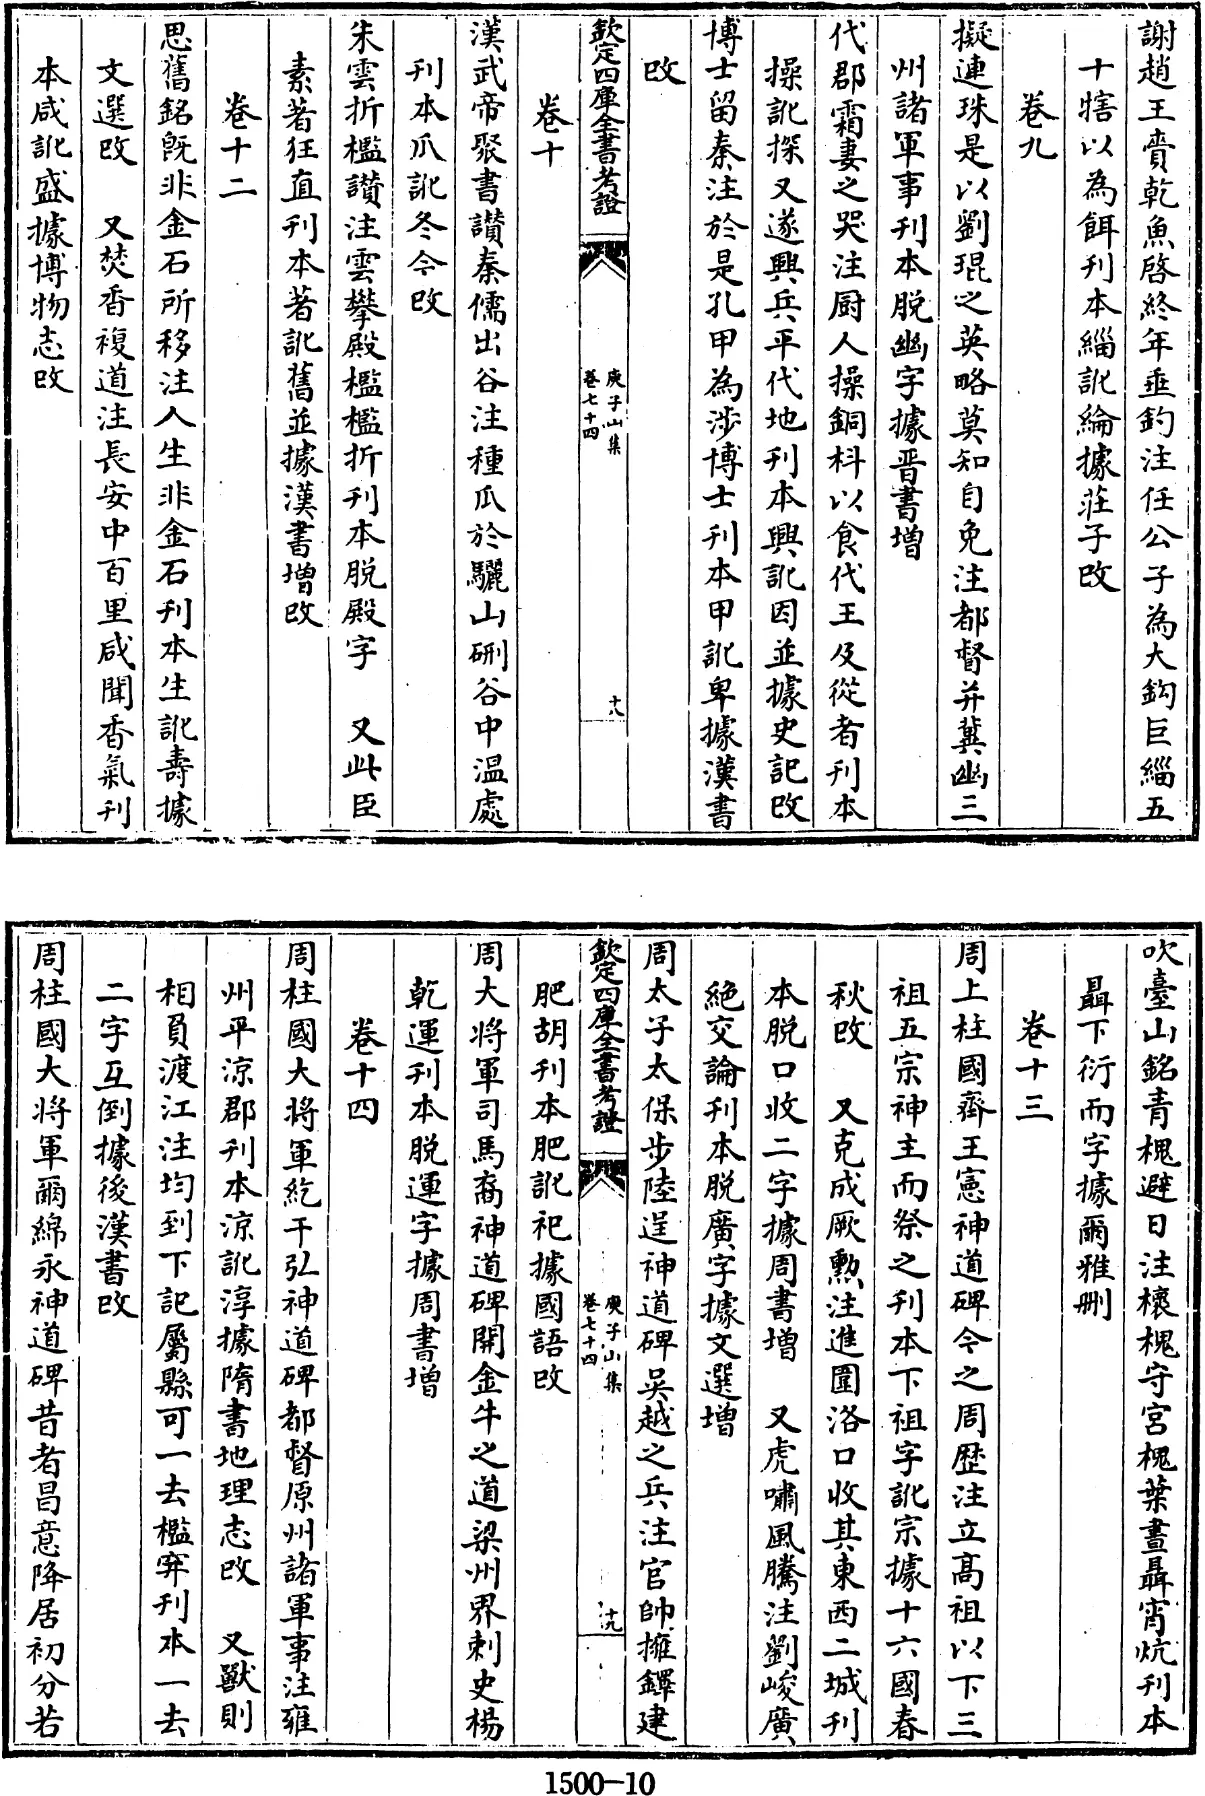 謝趙王賚乾魚啓終年垂釣注任公子為大鈎巨緇五
十犗以為餌刊本緇訛綸據莊子改
卷九
擬連珠是以劉琨之英略莫知自免注都督并冀幽三
州諸軍事刊本脱幽字據晉書增
代郡霜妻之哭注厨人操銅枓以食代王及從者刊本
操訛探又遂興兵平代地刊本興訛因並據史記改
博士留秦注於是孔甲為涉博士刊本甲訛卑據漢書
改
欽定四庫全書考證
庾子山集
卷七十四
十八
卷十
漢武帝聚書讃秦儒出谷注種瓜於驪山硎谷中温處
刊本瓜訛冬今改
朱雲折檻讃注雲攀殿檻檻折刊本脱殿字 又此臣
素著狂直刊本著訛舊並據漢書增改
卷十二
思舊銘既非金石所移注人生非金石刊本生訛壽據
文選改 又焚香複道注長安中百里咸聞香氣刊
本咸訛盛據博物志改
吹臺山銘青槐避日注櫰槐守宮槐葉晝聶宵炕刊本
聶下衍而字據爾雅刪
卷十三
周上柱國齊王憲神道碑今之周歷注立高祖以下三
祖五宗神主而祭之刊本下祖字訛宗據十六國春
秋改 又克成厥勲注進圍洛口收其東西二城刊
本脱口收二字據周書增 又虎嘯風騰注劉峻廣
絶交論刊本脱廣字據文選增
周太子太保步陸逞神道碑吳越之兵注官帥擁鐸建
欽定四庫全書考證
庾子山集
卷七十四
十九
肥胡刊本肥訛祀據國語改
周大將軍司馬裔神道碑開金牛之道梁州界刺史楊
乾運刊本脱運字據周書增
卷十四
周柱國大將軍紇干弘神道碑都督原州諸軍事注雍
州平涼郡刊本涼訛淳據隋書地理志改 又獸則
相負渡江注均到下記屬縣可一去檻穽刊本一去
二字互倒據後漢書改
周柱國大將軍爾綿永神道碑昔者昌意降居初分若
1500—10